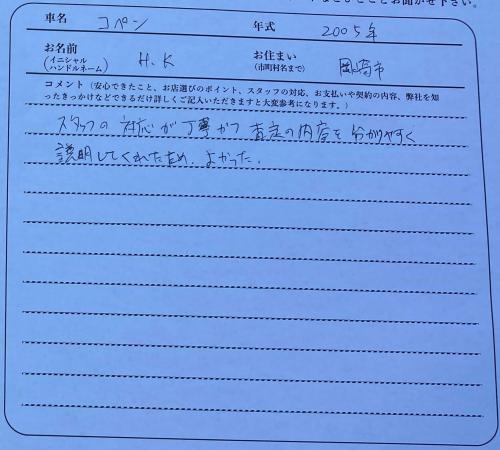 お聞かせ下さい。
車名 コペン 年式 2005年
お名前 (イニシャル ハンドルネーム) H.K お住まい (市町村名まで) 岡崎市
コメント (安心できたこと、お店選びのポイント、スタッフの対応、お支払いや契約の内容、弊社を知
ったきっかけなどできるだけ詳しくご記入いただきますと大変参考になります。)
スタッフの対応が丁寧かつ査定の内容を分かりやすく
説明してくれたため、よかった。